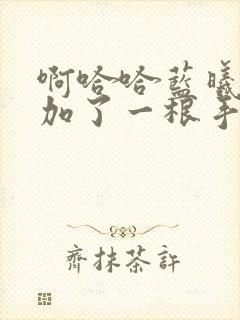 啊哈哈藍曦
加了一根手
齊抹茶許